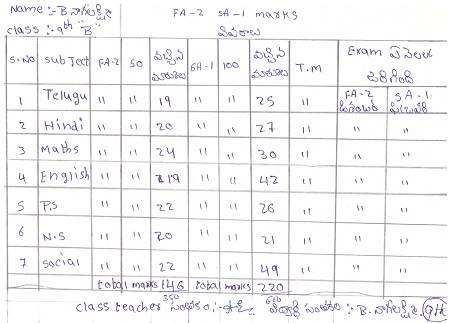 Name :- B నాగలక్ష్మి FA-2 SA-1 marks
class :- 9th "B" వివరాలు
S.NO subject FA-2 50 వచ్చిన మార్కులు SA-1 100 వచ్చిన మార్కులు T.M Exam ఏ నెలలో జరిగింది
FA-2 SA-1
1 Telugu " " 19 " " 25 "
2 Hindi " " 20 " " 27 " " "
3 maths " " 24 " " 30 " " "
4 English " " 19 " " 42 " " "
5 P.S " " 22 " " 26 " " "
6 N.S " " 20 " " 21 " " "
7 social " " 22 " " 49 " " "
total marks 146 total marks 220
350 600
class teacher సంతకం :- విద్యార్థి సంతకం :- B. నాగలక్ష్మి. 9th